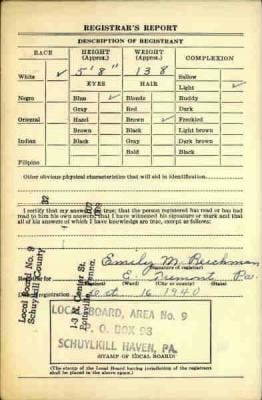 REGISTRAR'S REPORT
DESCRIPTION OF REGISTRANT
RACE
HEIGHT
(Approx.)
WEIGHT
(Approx.)
COMPLEXION
White ✓
5' 8"
138
Sallow
EYES
HAIR
Light ✓
Negro
Blue ✓
Blonde
Ruddy
Gray
Red
Dark
Oriental
Hazel
Brown ✓
Freckled
Brown
Black
Light brown
Indian
Black
Gray
Dark brown
Bald
Black
Filipino
Other obvious physical characteristics that will aid in identification
I certify that my answers are true; that the person registered has read or has had
read to him his own answers; that I have witnessed his signature or mark and that
all of his answers of which I have knowledge are true, except as follows:
Local Board No. 9
Schuylkill County
1-3 N. Centre St.
Pottsville, Penna.
Emily M.
(Signature of registrar)
Registrar for
E. Tremont Pa.
(Ward) (City or county) (State)
Date of registration Oct. 16 1940
LOCAL BOARD, AREA No. 9
P. O. BOX 93
SCHUYLKILL HAVEN, PA.
(STAMP OF LOCAL BOARD)
(The stamp of the Local Board having jurisdiction of the registrant
shall be placed in the above space.)